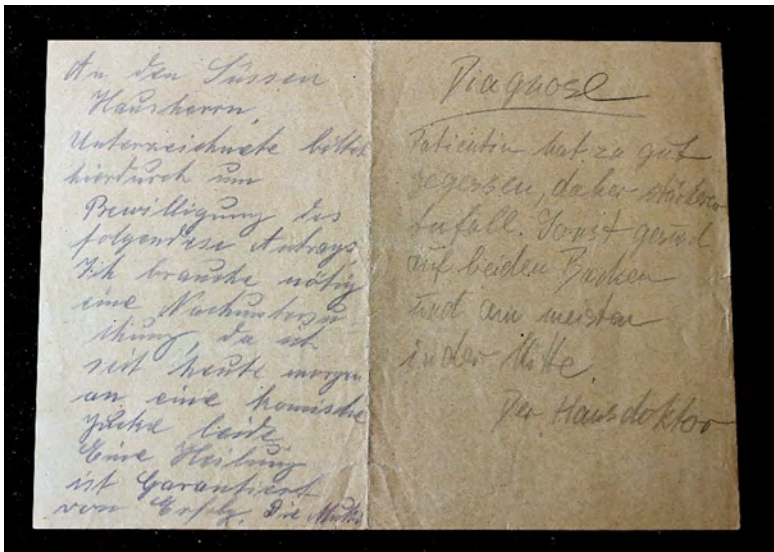 An den Süssen
Hausherrn,
Unterzeichnete bittet
hierdurch um
Bewilligung des
folgendese Antrags,
Ich brauche nötig
eine Nachuntersu-
chung, da ich
seit heute morgen
an eine komische
Jucke leide,
Eine Heilung
ist Garantiert
von Erfolg. Die
Diagnose
Patientin hat zu gut
gegessen, daher
Anfall. Sonst gesund
auf beiden Backen
und am meisten
in der Mitte
Der Hausdoktor